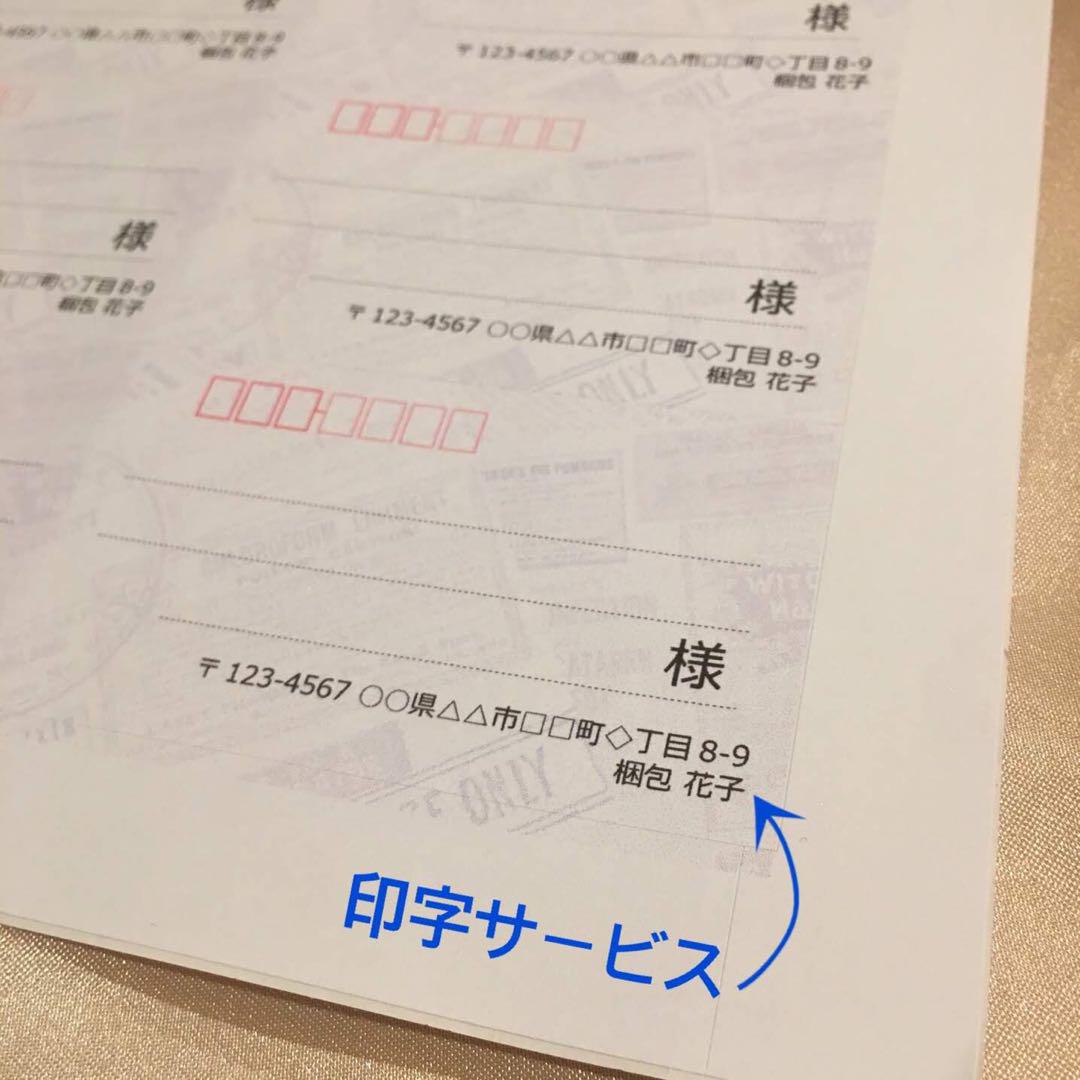 様
様
〒123-4567 ○○県△△市□□町◇丁目8-9
梱包 花子
梱包 花子
様
□□町◇丁目8-9
梱包 花子
様
〒123-4567 ○○県△△市□□町◇丁目8-9
梱包 花子
様
〒123-4567 ○○県△△市□□町◇丁目8-9
梱包 花子
ONLY
印字サービス